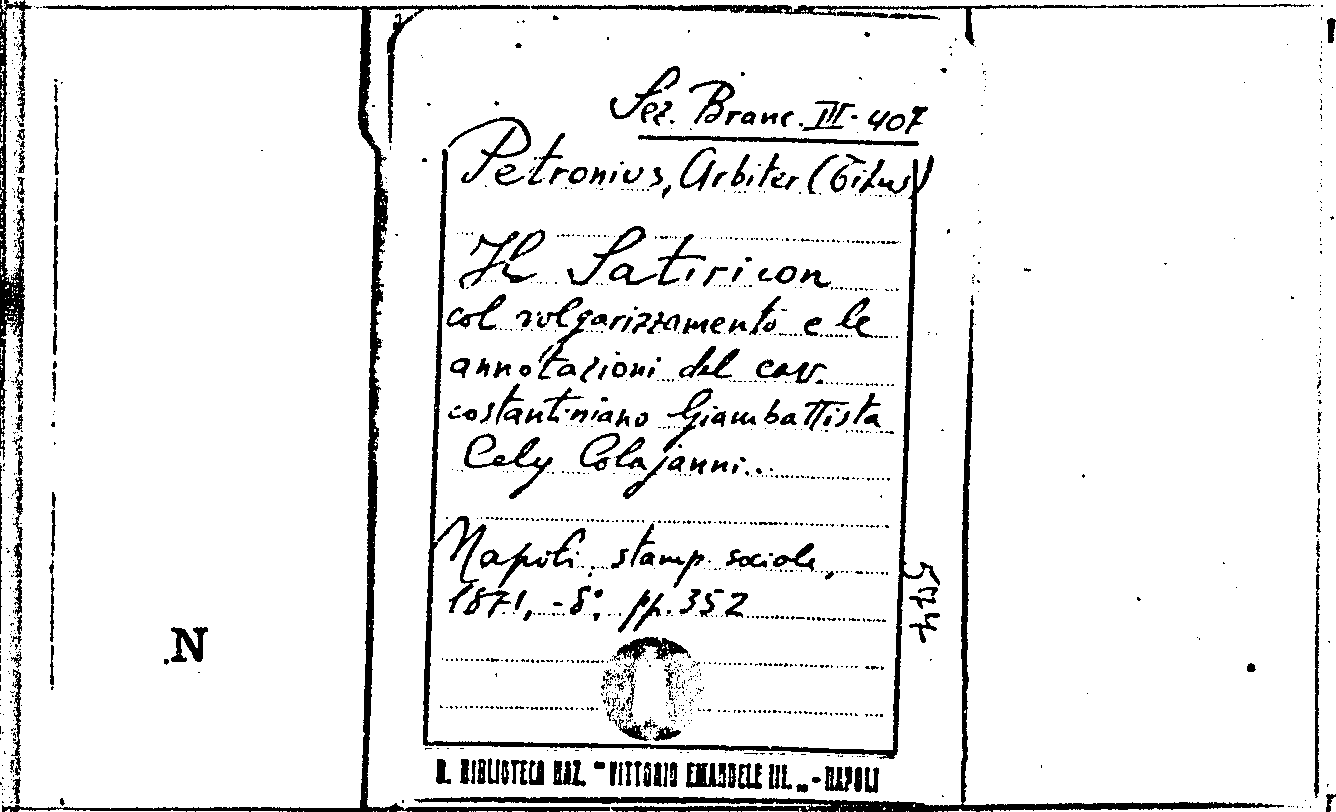 Sez. Branc. III - 407
Petronius, Arbiter (Titus)
Il Satiricon
col volgarizzamento e le
annotazioni del cav.
costantiniano Giambattista
Cely Colajanni...
Napoli, stamp. sociale,
1871, -8°, pp. 352
574
N
R. BIBLIOTECA NAZ. "VITTORIO EMANUELE III. „ - NAPOLI